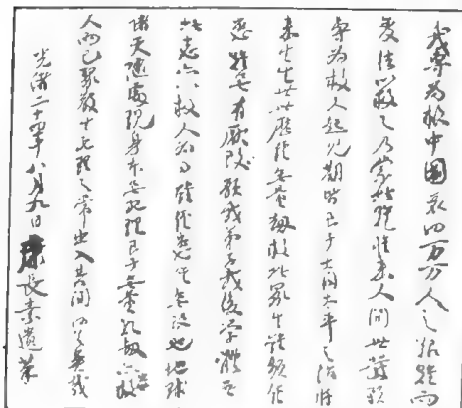 我專為救中國哀四万万人之艱難而
變法以救之乃蒙此難惟來人間世發願
專為救人起見期皆至于大同太平之治將
來生生世世歷經無量劫救此眾生雖頻經
患難無有厭改願我弟子我後學體吾
此志亦以救人為事雖經患難無改也地球
諸天隨處現身本無死理至于無量數劫亦救世
人而已聚散生死理之常出入其間何足異哉
光緒二十四年八月九日康長素遺筆